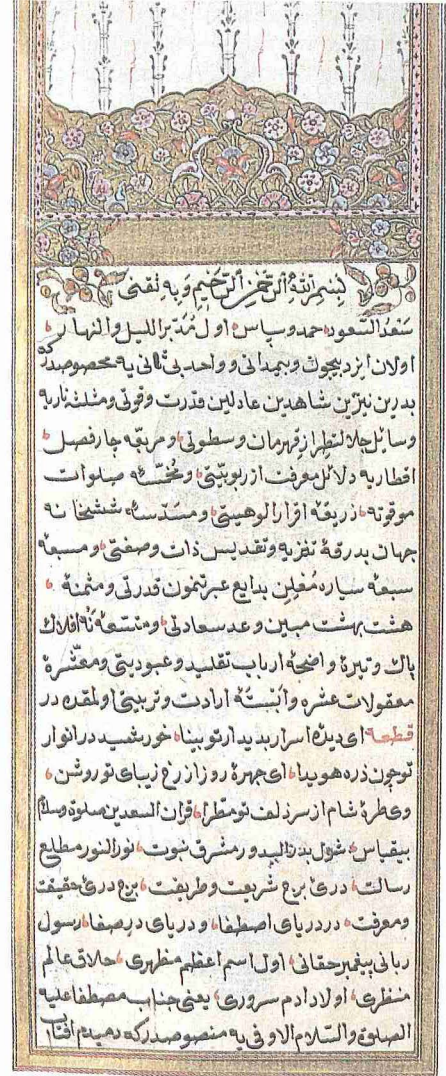 بسم الله الرحمن الرحيم وبه ثقتى
سعد السعود حمد وسپاس اول مدبر الليل والنهار
اولان ايزد بيچون وبيمدانى وواحد بى ثانى يه مخصوصدركه
بدرين نيرين شاهدين عادلين قدرت وقوتى ومثلثه ناريه
وسايل جلالتطراز قهرمان وسطوتى ومربعه چارفصل
اقطاريه دلائل معرفت ازربوبيتى ومخمسه صلوات
موقوته ذريعه اقرار الوهيتى ومسدسه ششخانه
جهان بدرقه تنزيه وتقديس ذات وصفتى ومسبعه
سبعه سياره معلن بدايع عبرتنمون قدرتى ومثمنه
هشت بهشت مبين وعد سعادلى ومتسعه نه افلاك
پاك وتيره واضحه ارباب تقليد وعبوديتى ومعشره
معقولات عشره وابنته ارادت وتربيتى اولمقده در
قطعه اى ديده اسرار بديدار تو بينا خورشيد در انوار
توچون ذره هويدا اى چهره روز از رخ زيباى تو روشن
وى طره شام از سر زلف تو مطرا قران السعدين صلوة وسلام
بيقياس شول بدر البدور مشرق نبوت نور النور مطلع
رسالت درى برج شريعت وطريقت برج درى حقيقت
ومعرفت در درياى اصطفا ودرياى در صفا رسول
ربانى پيغمبر حقانى اول اسم اعظم مظهرى خلاق عالم
منظرى اولاد ادم سرورى يعنى جناب مصطفا عليه
الصلوة والسلام الاوفى يه منصوصدركه دميدم افتاب